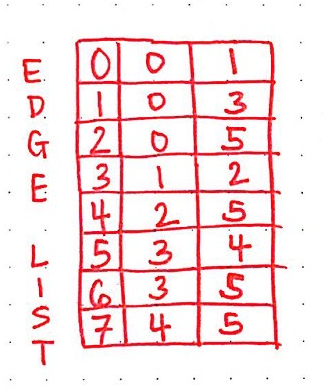 EDGE LIST
0 0 1
1 0 3
2 0 5
3 1 2
4 2 5
5 3 4
6 3 5
7 4 5